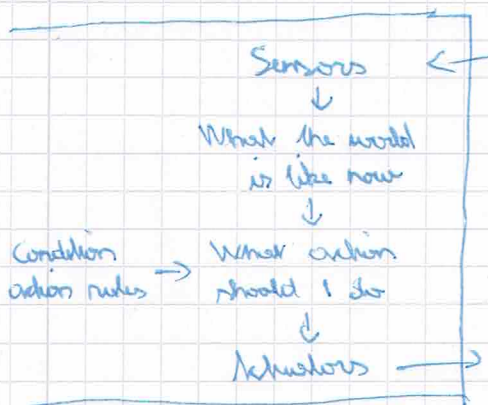 Sensors
What the world
is like now
Condition
action rules
What action
should I do
Actuators